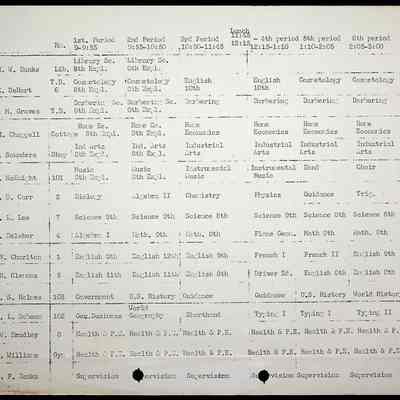 Lunch
1st. Period 2nd Period 3rd Period 11:45 4th period 5th period 6th period
No. 9-9:55 9:55-10:50 10:50-11:45 12:15 12:15-1:10 1:10-2:05 2:05-3:00
Library Sc. Library Sc.
W. Banks Lib. 8th Expl. 8th Expl.
T.B. Cosmetology Cosmetology English English Cosmetology Cosmetology
DeHart 6 8th Expl. 8th Expl. 10th 10th
Barbering Sc. Barbering Sc. Barbering Barbering Barbering Barbering
M. Graves T.B. 8th Expl. 8th Expl.
Home Ec. Home Ec. Home Home Home Home
Chappell Cottage 8th Expl. 8th Expl. Economics Economics Economics Economics
Ind Arts Ind. Arts Industrial Industrial Industrial Industrial
Saunders Shop 8th Expl. 8th Expl. Arts Arts Arts Arts
Music Music Instrumental Instrumental Band Choir
McKnight 101 8th Expl. 8th Expl. Music Music
D. Curr 2 Biology Algebra II Chemistry Physics Guidance Trig.
Lee 7 Science 9th Science 8th Science 8th Science 9th Science 8th Science 8th
Delsher 4 Algebra I Math. 9th. Math 9th. Plane Geom. Math 8th. Math 8th.
W. Charlton 1 English 9th English 12th English 9th French I French II English 9th
H. Clemons 5 English 11th English 11th English 8th Driver Ed. English 8th English 8th
S. Holmes 103 Government U.S. History Guidance Guidance U.S. History World History
World
102 Gen.Business Geography Shorthand Typing I Typing I Typing II
W. Bradley 8 Health & P.E. Health & P.E. Health & P.E. Health & P.E. Health & P.E. Health & P.
Williams Gym Health & P.E. Health & P.E. Health & P.E. Health & P.E. Health & P.E. Health & P.E.
P. Banks Supervision Supervision Supervision Supervision Supervision Supervision